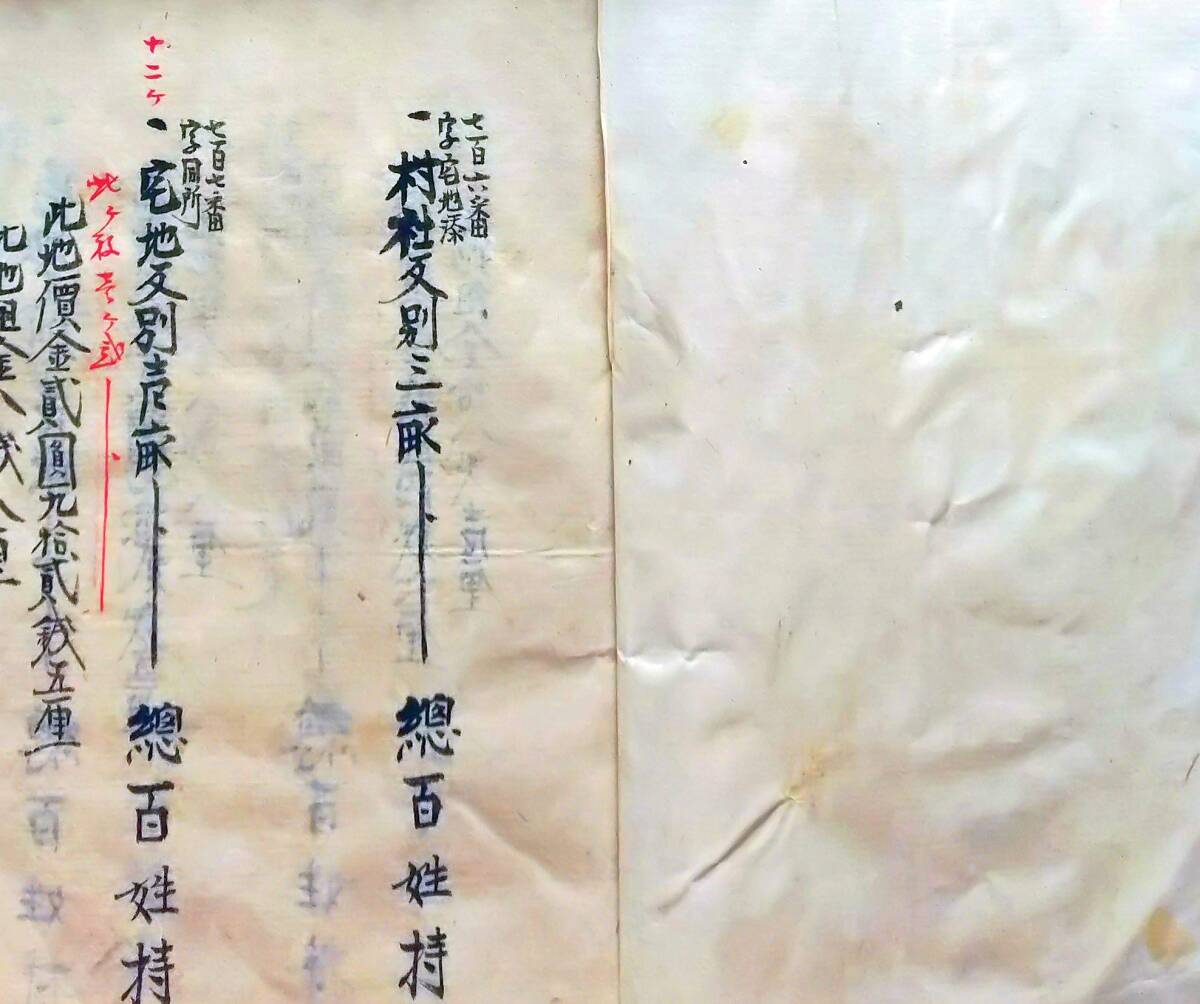 七百六番
字宅地添
一村社反別三畝
總百姓持
七百七番
字同所
十二ケ
一宅地反別壱畝
總百姓持
此
此地價金貳圓九拾貳錢五厘
此地租金八錢八厘